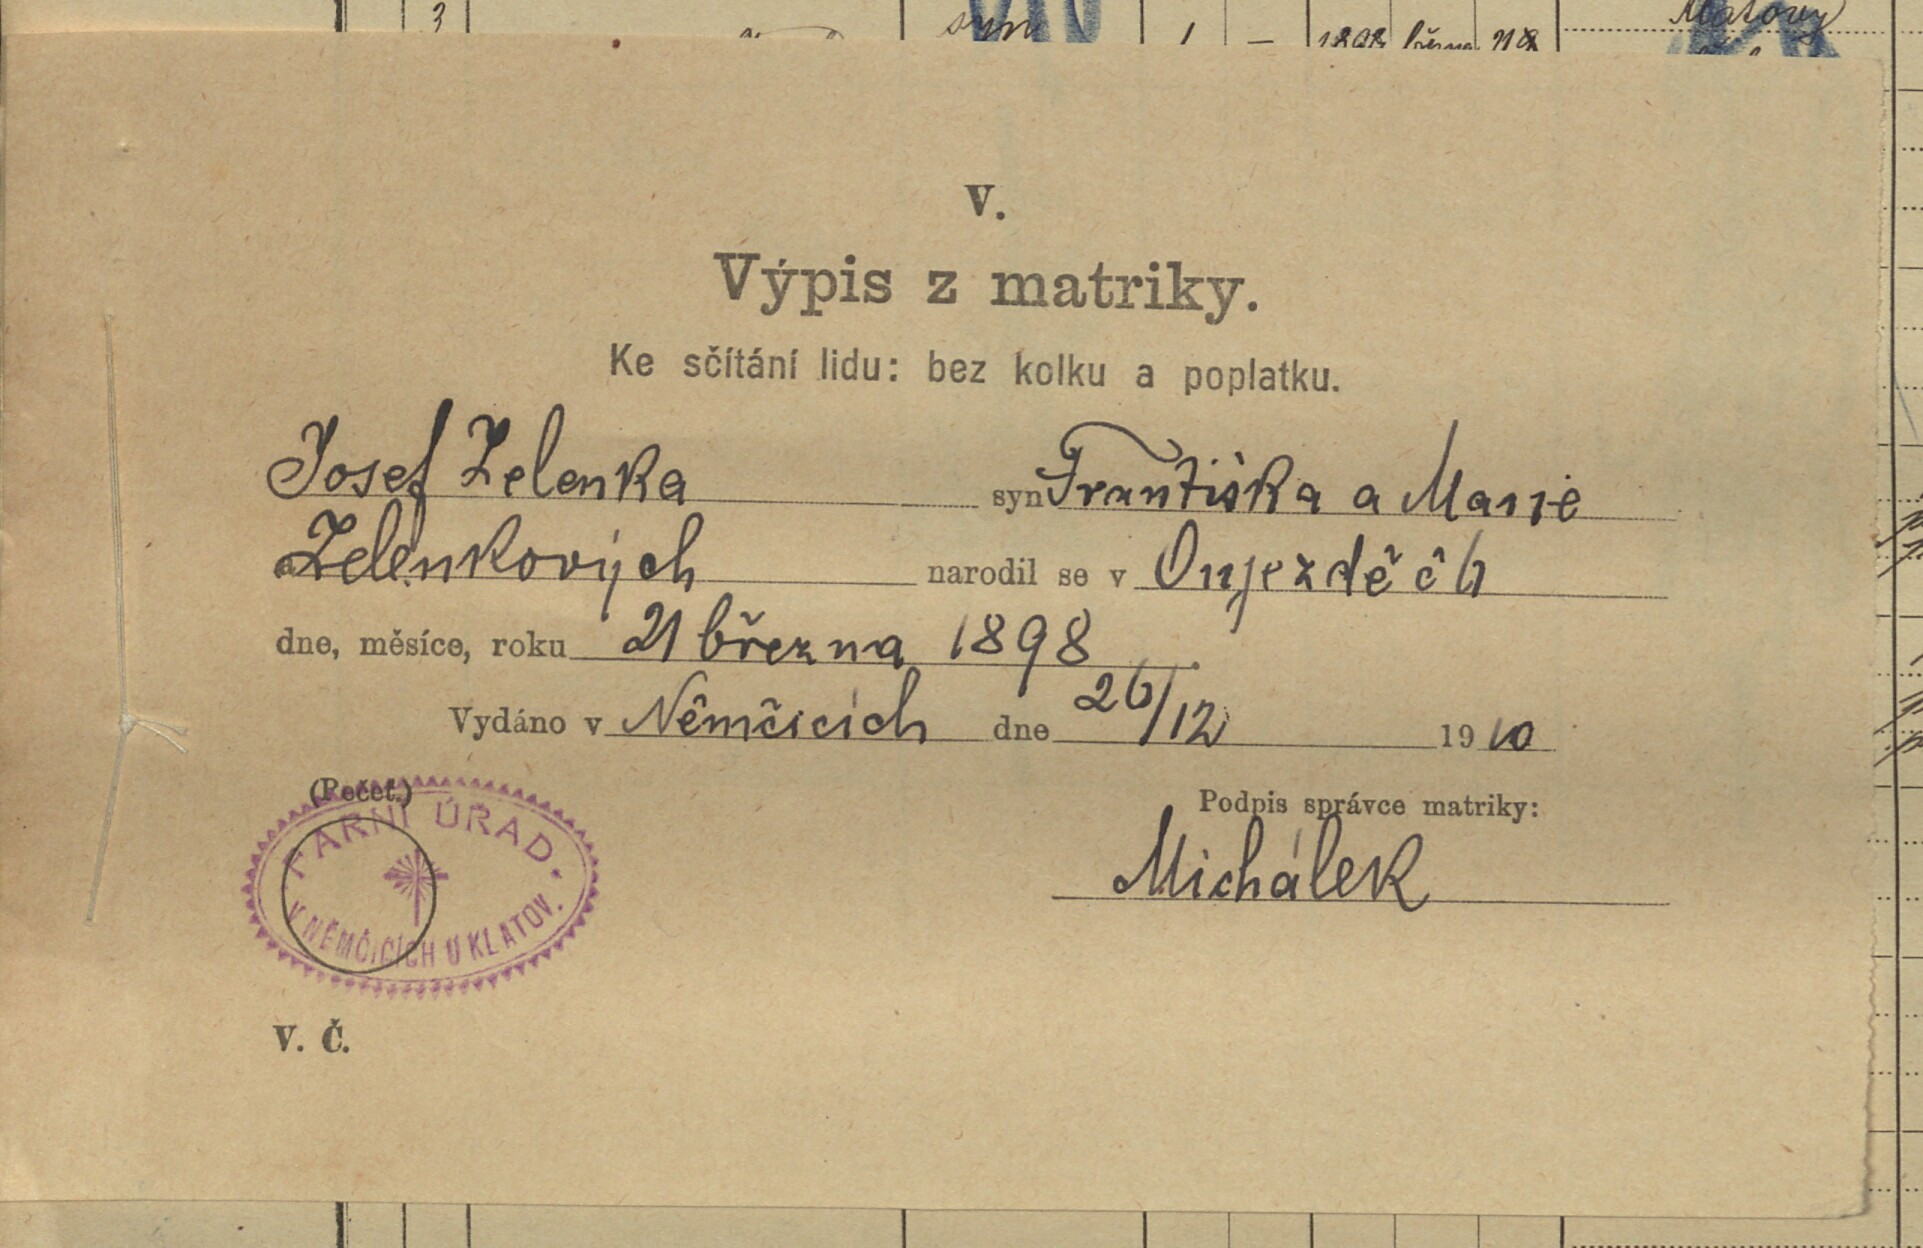 3
syn 1 — 1898 března 21
V.
Výpis z matriky.
Ke sčítání lidu: bez kolku a poplatku.
Josef Zelenka syn Františka a Marie
Zelenkových narodil se v Onjezdě č 6
dne, měsíce, roku 21 března 1898.
Vydáno v Němčicích dne 26/12 1910
(Pečeť.)
Podpis správce matriky:
FARNÍ ÚŘAD.
V NĚMČICÍCH U KLATOV.
Michálek
V. Č.